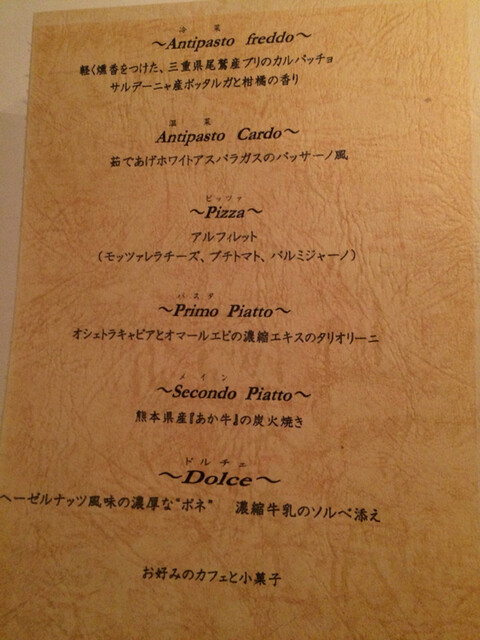 冷菜
～Antipasto freddo～
軽く燻香をつけた、三重県尾鷲産ブリのカルパッチョ
サルデーニャ産ボッタルガと柑橘の香り
温菜
Antipasto Cardo～
茹であげホワイトアスパラガスのバッサーノ風
ピッツァ
～Pizza～
アルフィレット
(モッツァレラチーズ、プチトマト、パルミジャーノ)
パスタ
～Primo Piatto～
オシェトラキャビアとオマールエビの濃縮エキスのタリオリーニ
メイン
～Secondo Piatto～
熊本県産『あか牛』の炭火焼き
ドルチェ
～Dolce～
ヘーゼルナッツ風味の濃厚な“ボネ” 濃縮牛乳のソルベ添え
お好みのカフェと小菓子